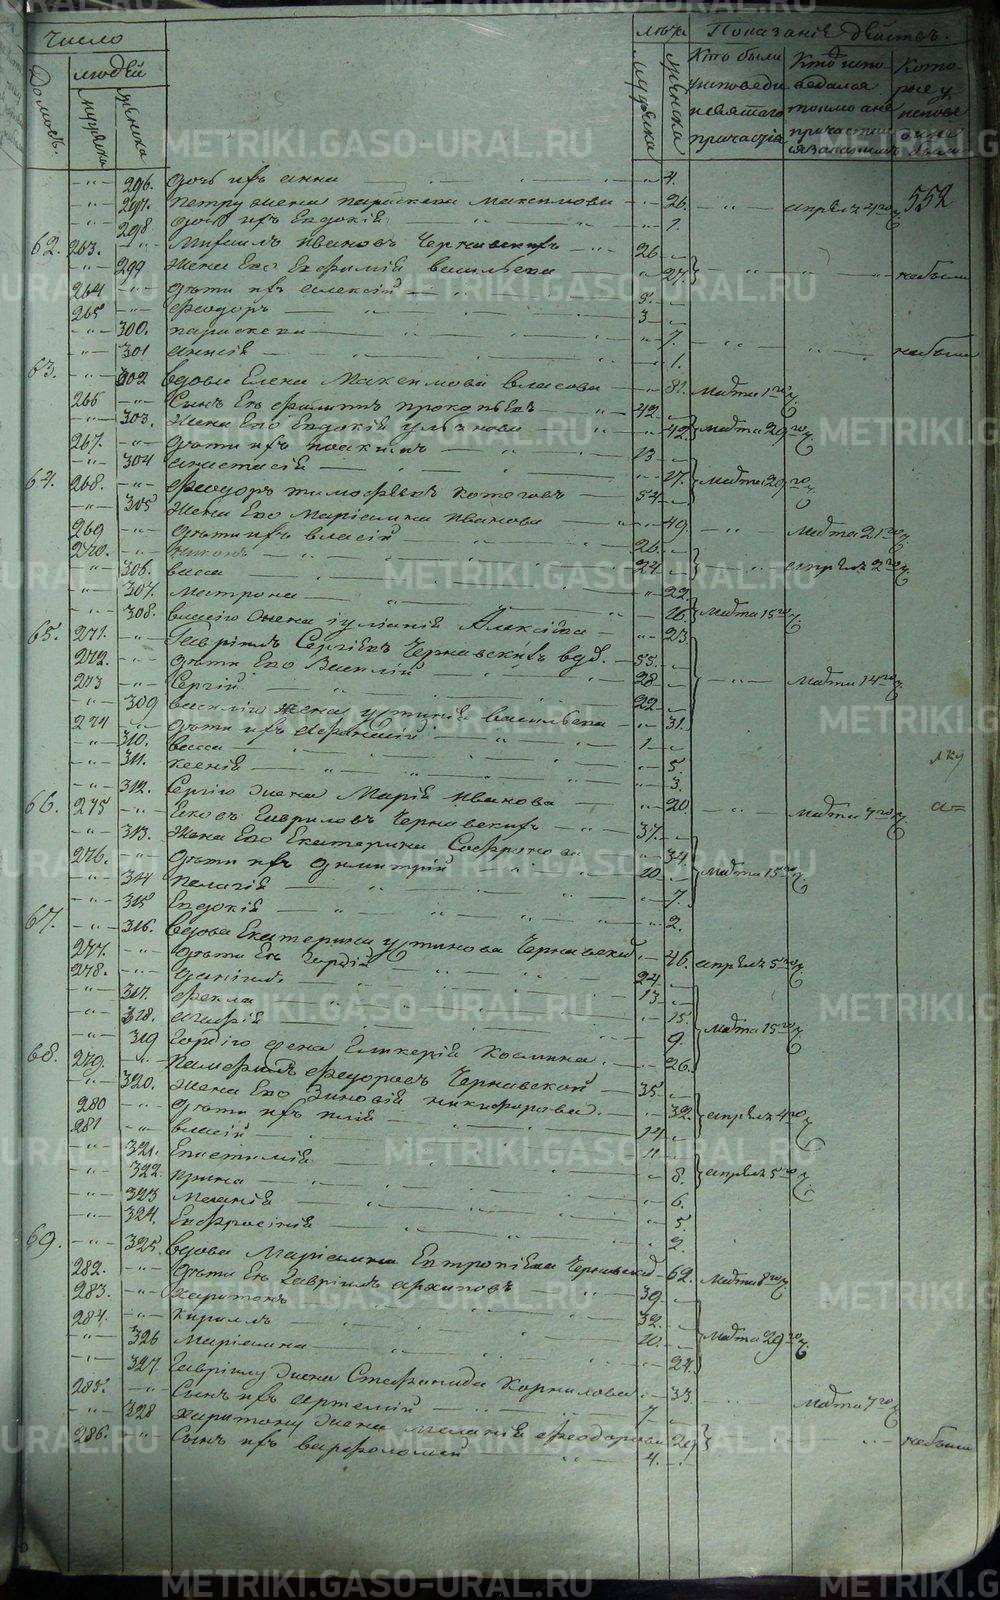 Число
Домовъ.
людей
мужска
женска
лѣта
мужска
женска
Показаніе действъ.
Кто были у исповеди и святаго причастія
Кто испо- ведался токмо а не причастил
Кото- рые у испове
552
296. дочь ихъ анна 4.
297. петру жена параскева Максимова 26. апреля 4го ч.
298 дочь ихъ Евдокія 1.
62. 263. Михаилъ Ивановъ Чернавскихъ 26
299 Жена Его Евфимія васильева 27. небыли
264 дети ихъ алексій 8.
265 феодоръ 3
300. параскева 7.
301 анисія 1. небыли
63. 302 вдова Елена Максимова власова 81. Марта 1го ч.
266 Сынъ Ея филиппъ прокопьевъ 42
303. Жена Его Евдокія ульянова 42 Марта 29го ч.
267. дети ихъ иоакимъ 13
304 анастасія 17. Марта 20го ч.
64. 268. феодоръ тимофѣевъ котеговъ 54
305 Жена Его Маріамна иванова 49 Марта 21го ч.
269 дети ихъ власій 26
270. никонъ 24 апреля 2го ч.
306. васса 22
307. матрона 16. Марта 15го ч.
308. власію жена іуліанія Алексѣева 23
65. 271. Гавріилъ Сергіевъ Чернавскихъ вдов. 55
272. дети Его Василій 28 Марта 14го ч.
273 Сергій 22
309 василію жена устинія васильева 31.
274 дети ихъ афанасій 1
310. васса 5.
311. ксенія 3.
312. Сергію жена Марія иванова 20 Марта 7го ч.
66. 275 Іаковъ Гавриловъ Чернавскихъ 37
313. Жена Его Екатерина Софронова 34.
276. дети ихъ димитрій 10 Марта 15го ч.
314 пелагія 7.
315 Евдокія 2.
67. 316. вдова Екатерина устинова Чернавских 46. апреля 5го ч.
277. дети Ея Гордій 24
278. даніилъ 13
317. фекла 15 Марта 15го ч.
318. агафія 9.
319 Гордію жена Гликерія Космина 26.
68. 279. памфилъ феодоровъ Чернавской 35
320. Жена Его Зиновія никифорова 32. апреля 4го ч.
280 дети ихъ илія 14
281 власій 11
321. Епистимія 8. апреля 5го ч.
322. ирина 6.
323 меланія 5.
324. Евфросинія 2.
69. 325. вдова Маріамна Евтропіева Чернавских 62. Марта 8го ч.
282. дети Ея Гавріилъ архиповъ 39
283. харитонъ 32
284. кириллъ 20 Марта 29го ч.
326 Маріамна 24
327. Гавріилу жена Стефанида Корнилова 33
285. Сынъ ихъ артемій 7 Марта 7го ч.
328 харитону жена меланія феодорова 29
286. Сынъ ихъ варфоломей 4. небыли
METRIKI.GASO-URAL.RU